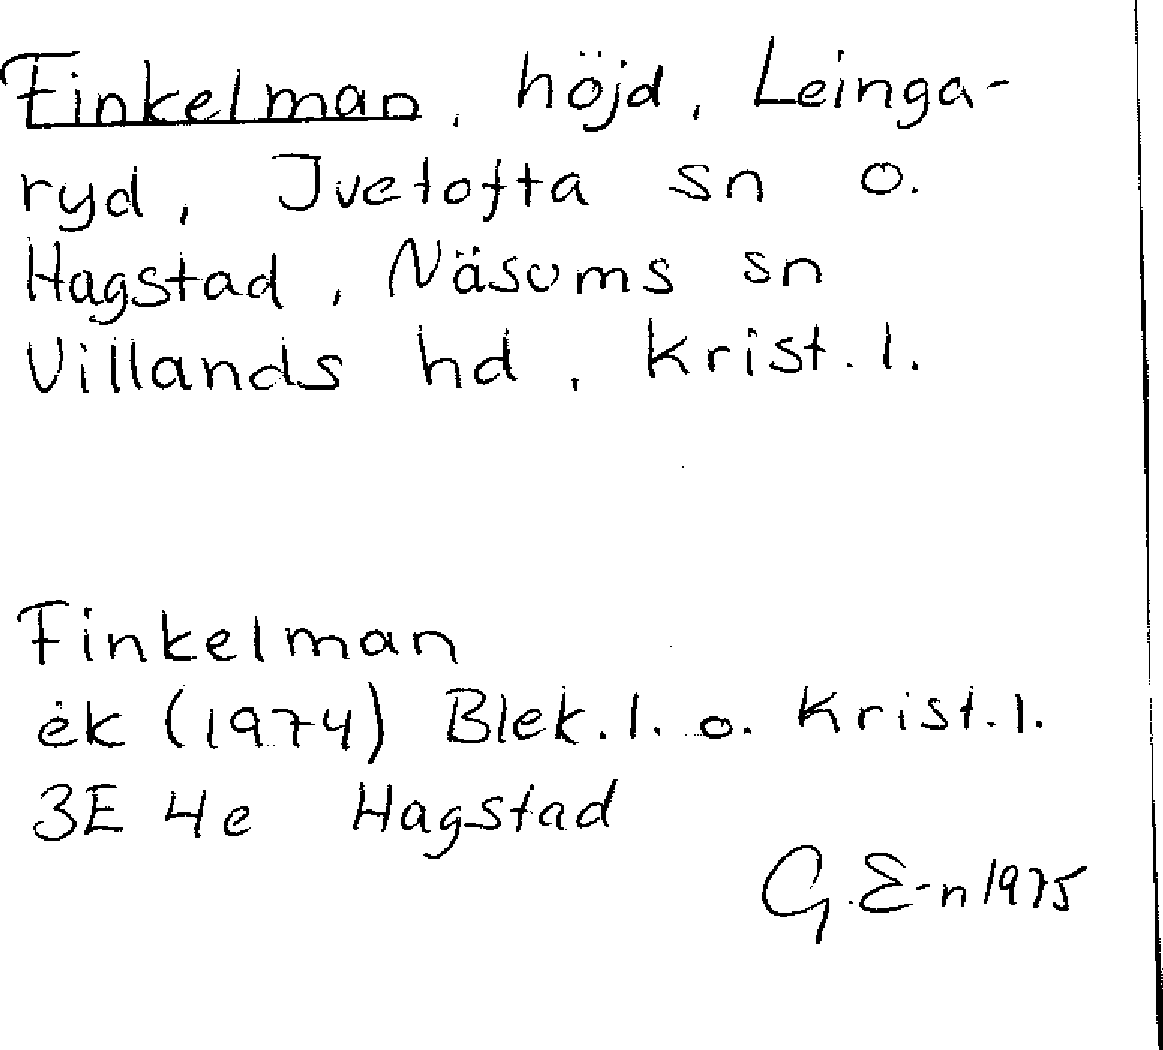 Finkelman, höjd, Leinga-
ryd, Ivetofta sn o.
Hagstad, Näsums sn
Villands hd, Krist. l.
Finkelman
ek (1974) Blek. l. o. Krist. l.
3E 4e Hagstad
G. E-n 1975